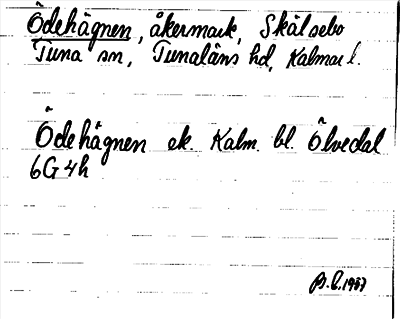 Ödehägnen, åkermark, Skälsebo
Tuna sn, Tunaläns hd, Kalmar l.
Ödehägnen ek. Kalm. bl. Ölvedal
6G 4h
B.E. 1987